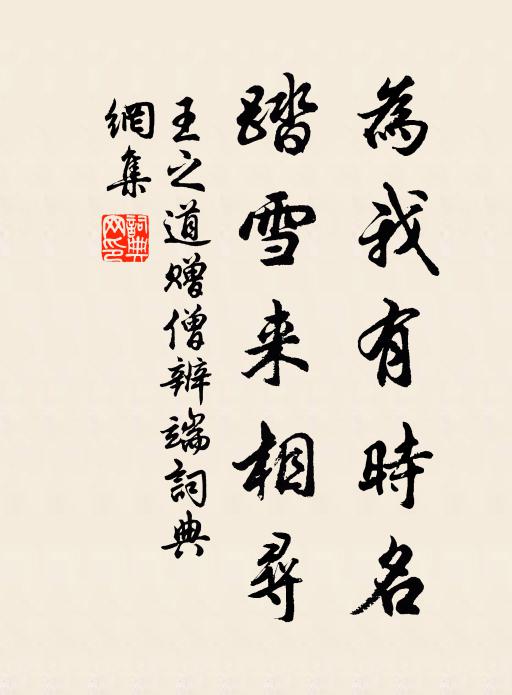 為我有時名
踏雪来相尋
王之道贈僧辨端詞典
網集
詞典網印